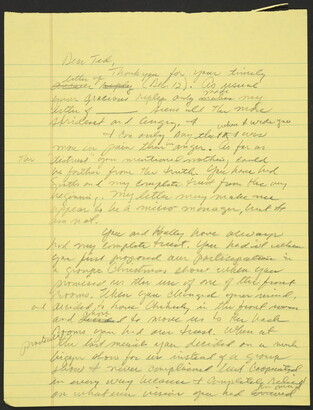 Dear Ted,
letter of
Thank you for your timely
reply (Dec 12). As usual
your gracious reply only makes my
letter of — seem all the more
strident and angry. I
when I wrote you
I can only say that I was
more in pain than anger. As far as
distrust you mentioned nothing could
be further from the truth. You have had
faith and my complete trust from the very
beginning. My letter may make me
appear to be a micro manager, but I do
am not.
You and Holly have always
had my complete trust. You had it when
you first proposed our participation in
a group Christmas show when you
promised us the use of one of the front
rooms. When you changed your mind,
and decided to have in the front room
and to move us to the back
rooms you had our trust. When at
practically
the last minute you decided on a much
bigger show for us instead of a group
show I never complained but cooperated
in every way because I completely relied
on whatever vision you had formed